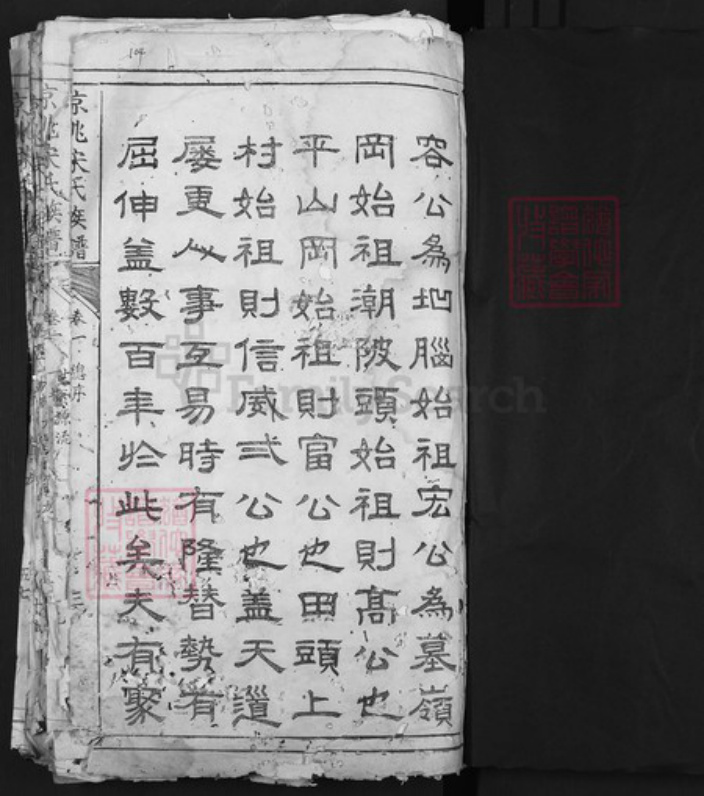 容公為地腦始祖宏公為墓嶺
岡始祖潮陂頭始祖則髙公也
平山岡始祖則富公也田頭上
村始祖則信威弍公也蓋天道
屢更人事互易時有隆替勢有
屈伸盖數百年扵此矣夫有家
京兆宋氏族譜
卷一
FamilySearch
104